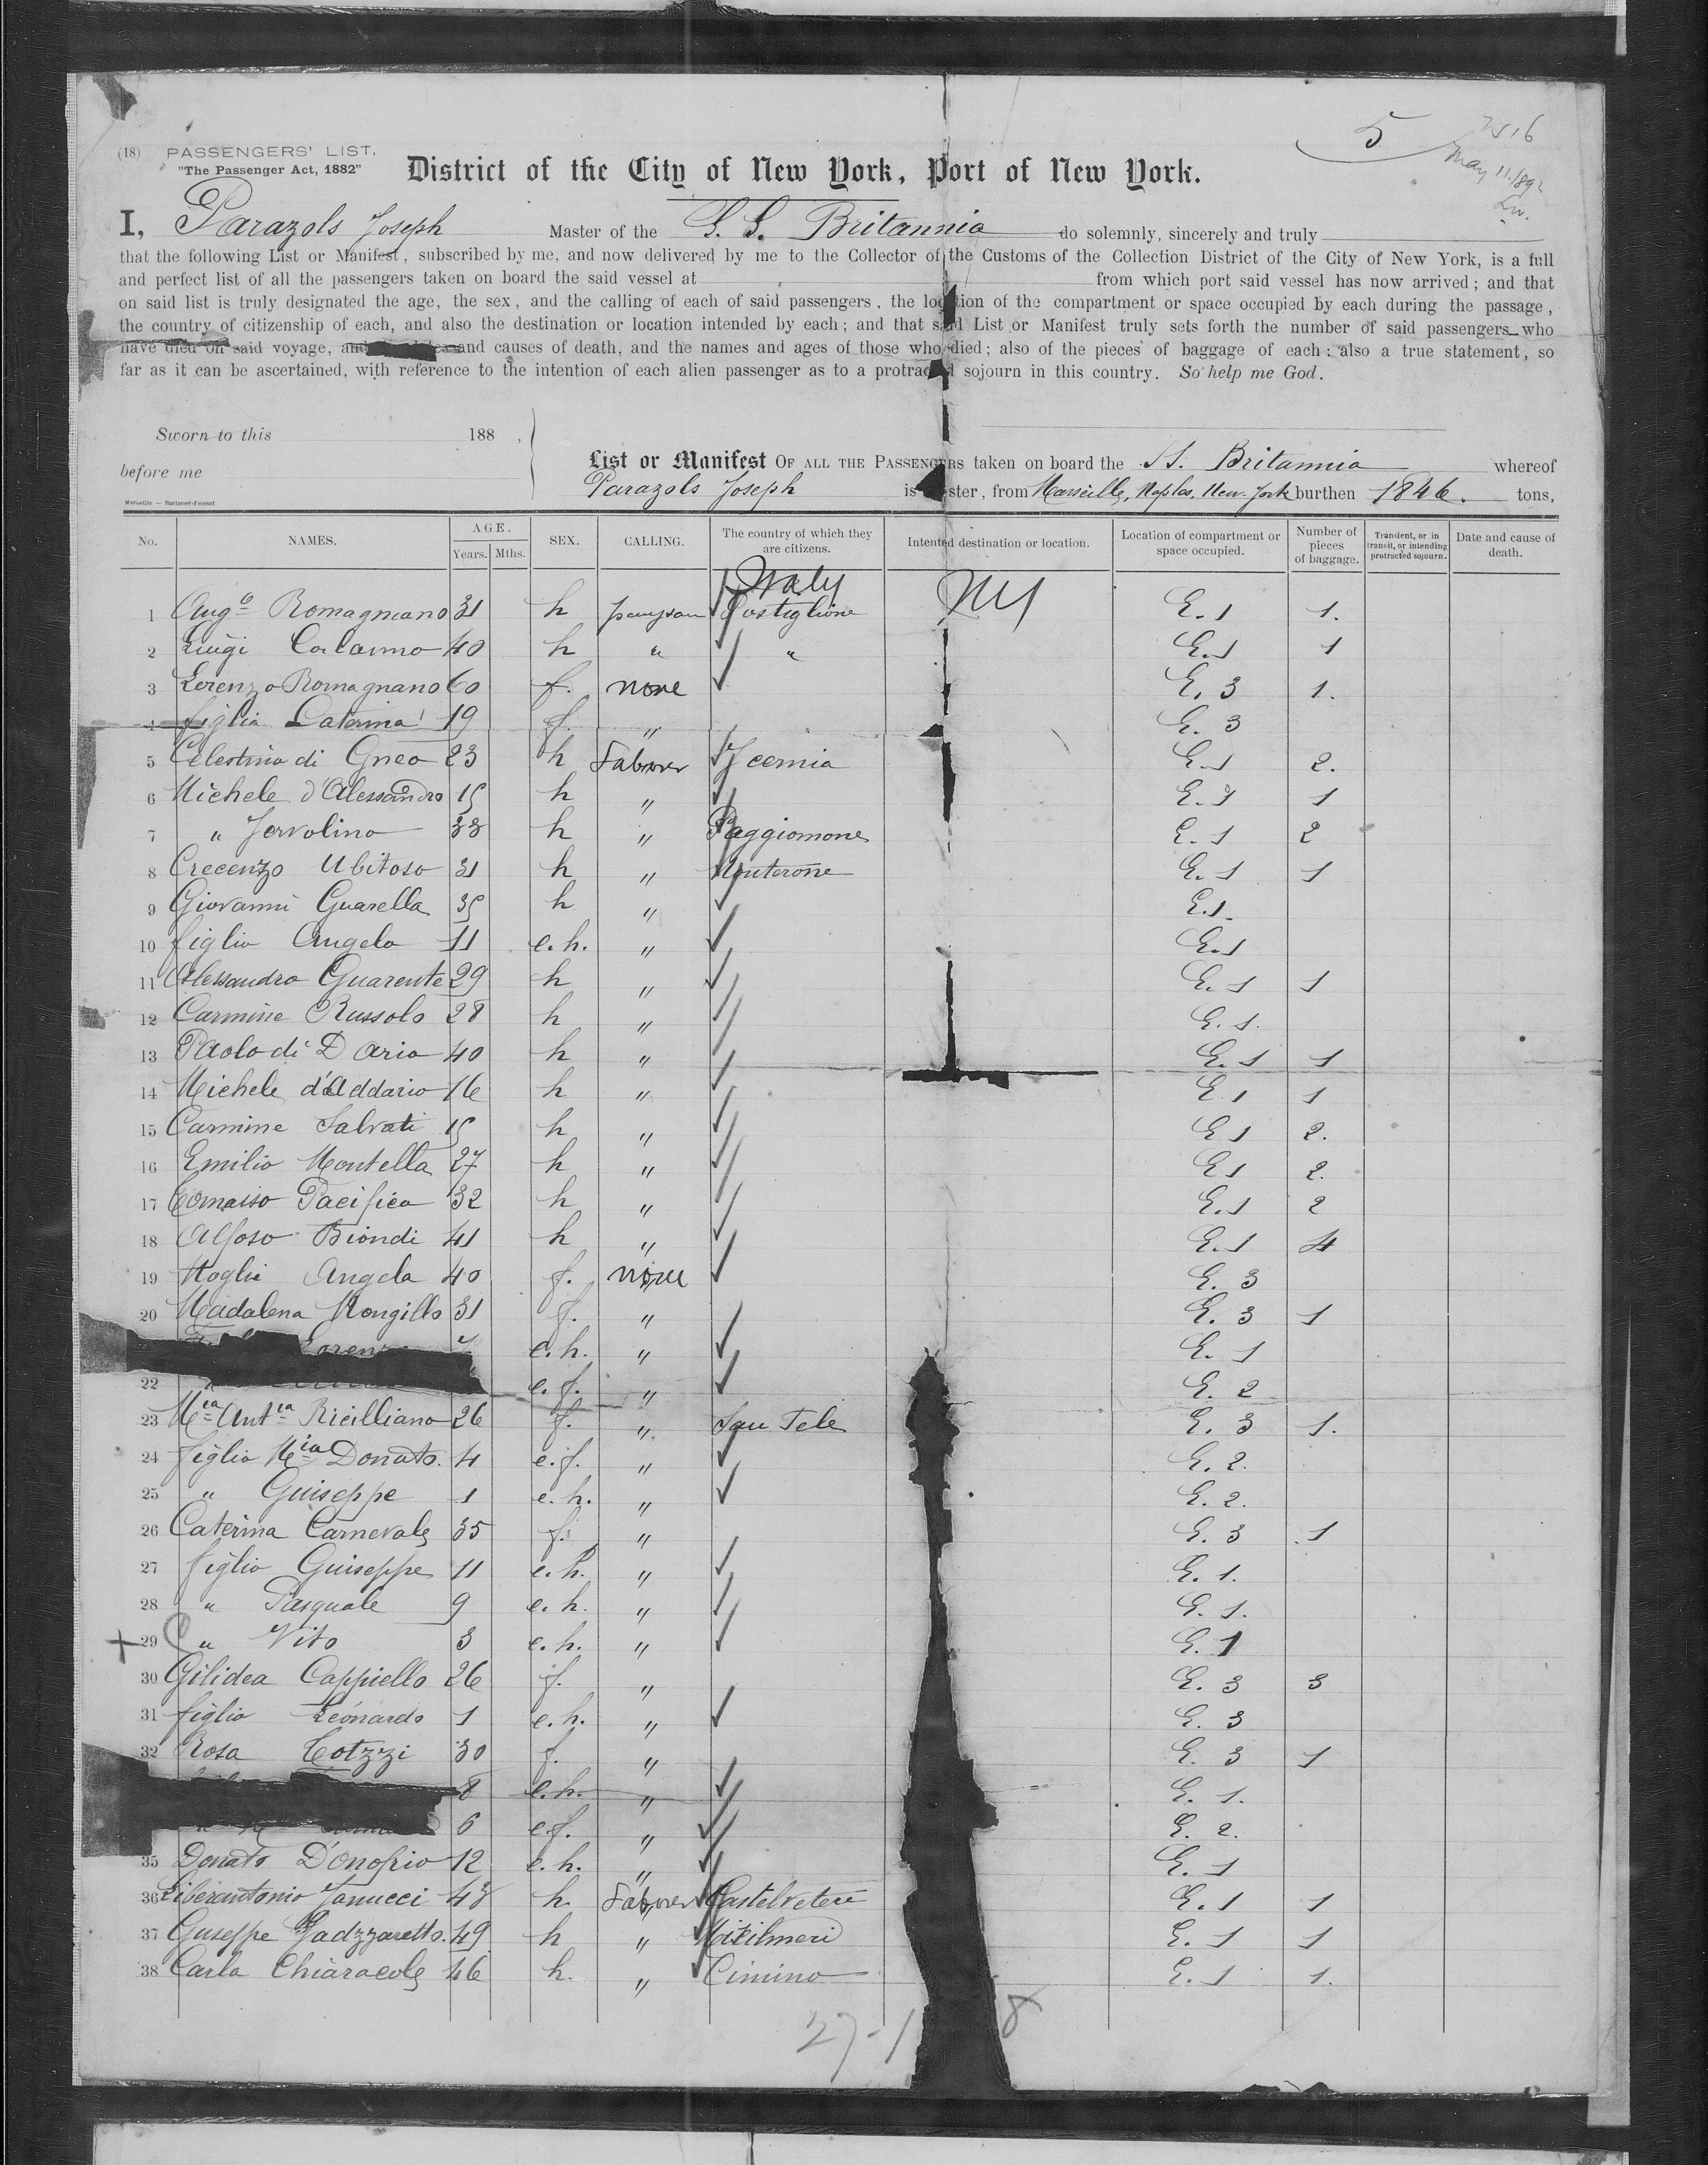 5
2516
May 11. 1892
Lw.
(18) PASSENGERS' LIST.
"The Passenger Act, 1882"
District of the City of New York, Port of New York.
I, Parazols Joseph Master of the S. S. Britannia do solemnly, sincerely and truly
that the following List or Manifest, subscribed by me, and now delivered by me to the Collector of the Customs of the Collection District of the City of New York, is a full
and perfect list of all the passengers taken on board the said vessel at from which port said vessel has now arrived; and that
on said list is truly designated the age, the sex, and the calling of each of said passengers, the location of the compartment or space occupied by each during the passage,
the country of citizenship of each, and also the destination or location intended by each; and that said List or Manifest truly sets forth the number of said passengers who
have died on said voyage, and and causes of death, and the names and ages of those who died; also of the pieces of baggage of each; also a true statement, so
far as it can be ascertained, with reference to the intention of each alien passenger as to a protracted sojourn in this country. So help me God.
Sworn to this 188 ,
before me
List or Manifest OF ALL THE PASSENGERS taken on board the SS. Britannia whereof
Parazols Joseph is Master, from Marseille, Naples, New-York burthen 1846. tons,
No. NAMES. AGE. Years. Mths. SEX. CALLING. The country of which they are citizens. Intented destination or location. Location of compartment or space occupied. Number of pieces of baggage. Transient, or in transit, or intending protracted sojourn. Date and cause of death.
Italy NY
1 Augo Romagnano 31 h paysan Postiglione E. 1 1.
2 Luigi Calamo 40 h " " E. 1 1
3 Lorenzo Romagnano 60 f. none E. 3 1.
4 figlia Caterina 19 f. " E. 3
5 Celestino di Gneo 23 h Laborer Icernia E. 1 2.
6 Michele d'Alessandro 15 h " E. 1 1
7 " Jervolino 33 h " Poggiomone E. 1 2
8 Crecenzo Ubitoso 31 h " Monterone E. 1 1
9 Giovanni Guarella 35 h " E. 1.
10 figlio Angelo 11 e. h. " E. 1
11 Alessandro Guarente 29 h " E. 1 1
12 Carmine Russolo 28 h " E. 1.
13 Paolo di Dario 40 h " E. 1 1
14 Michele d'Addario 16 h " E 1 1
15 Carmine Salvati 15 h " E 1 2.
16 Emilio Montella 27 h " E 1 2.
17 Tomasso Pacifico 32 h " E. 1 2
18 Alfoso Biondi 41 h " E. 1 4
19 Moglie Angela 40 f. none E. 3
20 Madalena Mongillo 31 f. " E. 3 1
Lorenzo e. h. " E. 1
22 e. f. " E. 2
23 Mia Antia Ricilliano 26 f. " San Tele E. 3 1.
24 figlia Mia Donato. 4 e. f. " E. 2.
25 " Guiseppe 1 e. h. " E. 2.
26 Caterina Carnevale 35 f. " E. 3 1
27 figlio Guiseppe 11 e. h. " E. 1.
28 " Pasquale 9 e. h. " E. 1.
+ 29 " Vito 3 e. h. " E. 1
30 Gilidea Cappiello 26 f. " E. 3 3
31 figlio Leonardo 1 e. h. " E. 3
32 Rosa Cotzzi 30 f. " E. 3 1
8 e. h. " E. 1.
6 e f. " E. 2.
35 Donato D'onofrio 12 e. h. " E. 1
36 Liberantonio Janucci 43 h Laborer Castelvetere E. 1 1
37 Guseppe Gadzzaretto. 49 h " Misilmeri E. 1 1
38 Carla Chiaracole 46 h. " Cimino E. 1 1.
27-1 8